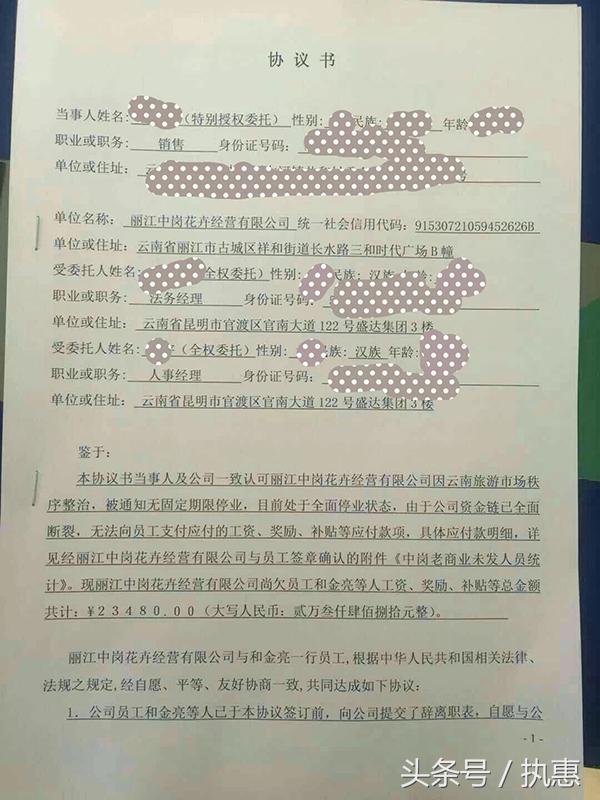 协 议 书
当事人姓名:（特别授权委托）性别:民族:年龄
职业或职务: 销售 身份证号码:
单位或住址: 云南号
单位名称: 丽江中岗花卉经营有限公司 统一社会信用代码: 91530721059452626B
单位或住址: 云南省丽江市古城区祥和街道长水路三和时代广场 B 幢
受委托人姓名:（全权委托）性别:民族: 汉族 年龄:
职业或职务: 法务经理 身份证号码:
单位或住址: 云南省昆明市官渡区官南大道 122 号盛达集团 3 楼
受委托人姓名:（全权委托）性别:民族: 汉族 年龄:
职业或职务: 人事经理 身份证号码:
单位或住址: 云南省昆明市官渡区官南大道 122 号盛达集团 3 楼
鉴于:
本协议书当事人及公司一致认可丽江中岗花卉经营有限公司因云南旅游市场秩
序整治，被通知无固定期限停业，目前处于全面停业状态，由于公司资金链已全面
断裂，无法向员工支付应付的工资、奖励、补贴等应付款项，具体应付款明细，详
见经丽江中岗花卉经营有限公司与员工签章确认的附件《中岗老商业未发人员统
计》。现丽江中岗花卉经营有限公司尚欠员工和金亮等人工资、奖励、补贴等总金额
共计: ¥23480.00（大写人民币: 贰万叁仟肆佰捌拾元整）。
丽江中岗花卉经营有限公司与和金亮一行员工,根据中华人民共和国相关法律、
法规之规定,经自愿、平等、友好协商一致,共同达成如下协议:
1．公司员工和金亮等人已于本协议签订前，向公司提交了辞离职表，自愿与公
- 1 -
头条号 / 执惠